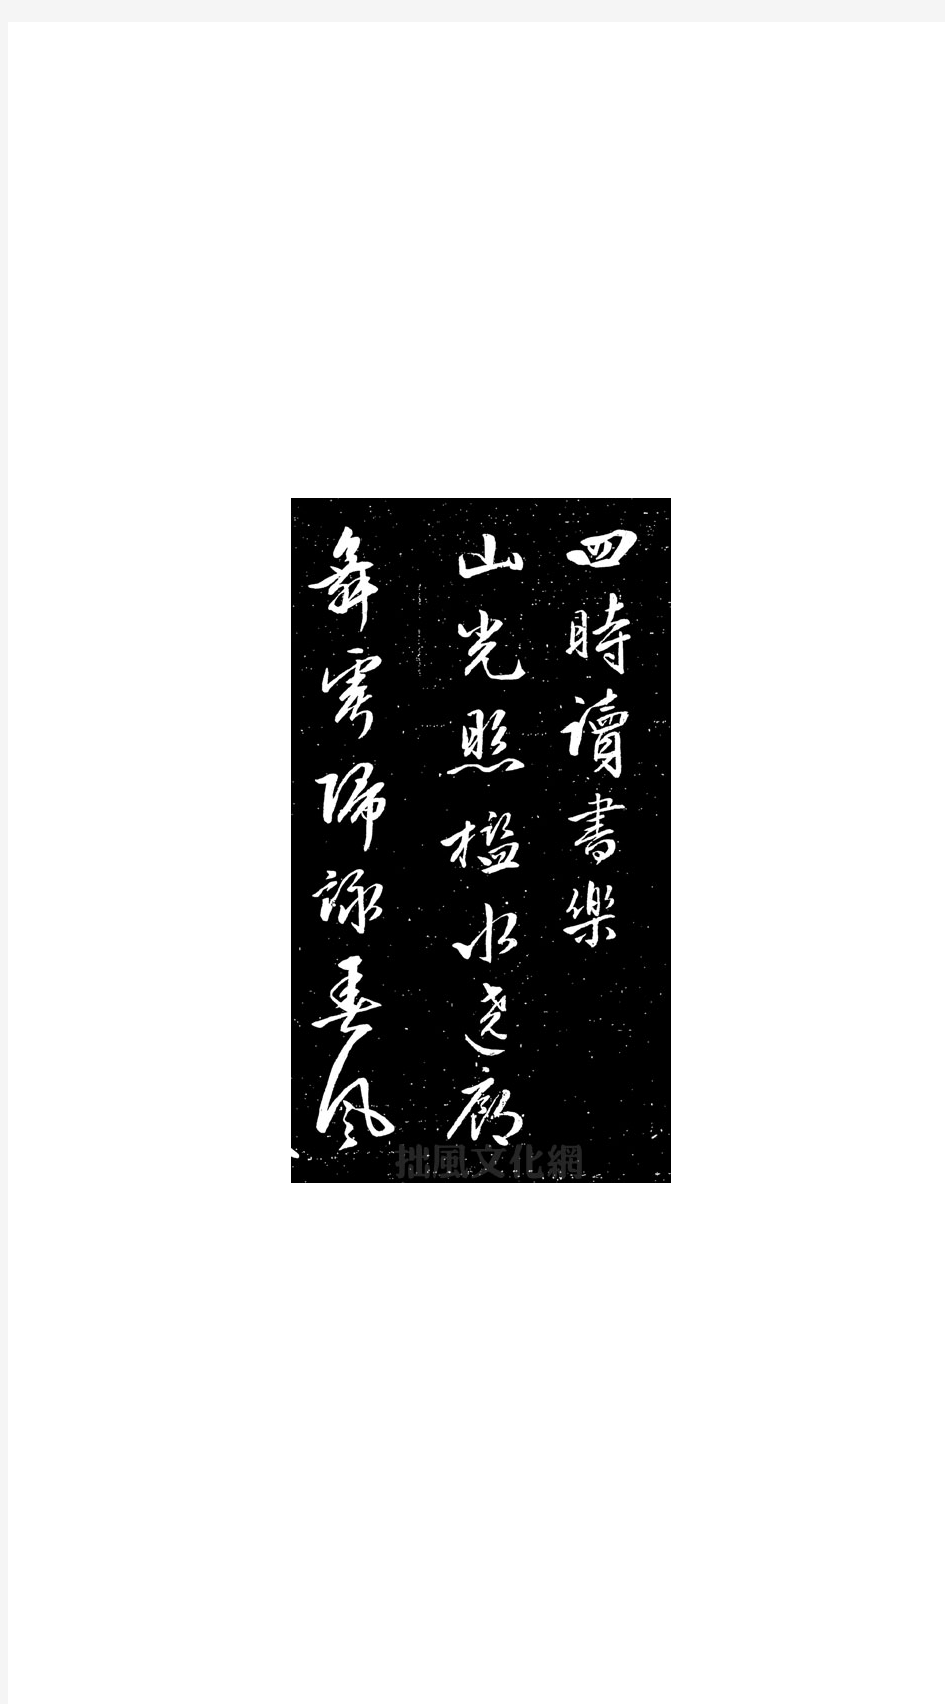 四時讀書樂
山光照檻水遶廊
舞雩歸詠春風
拙風文化網